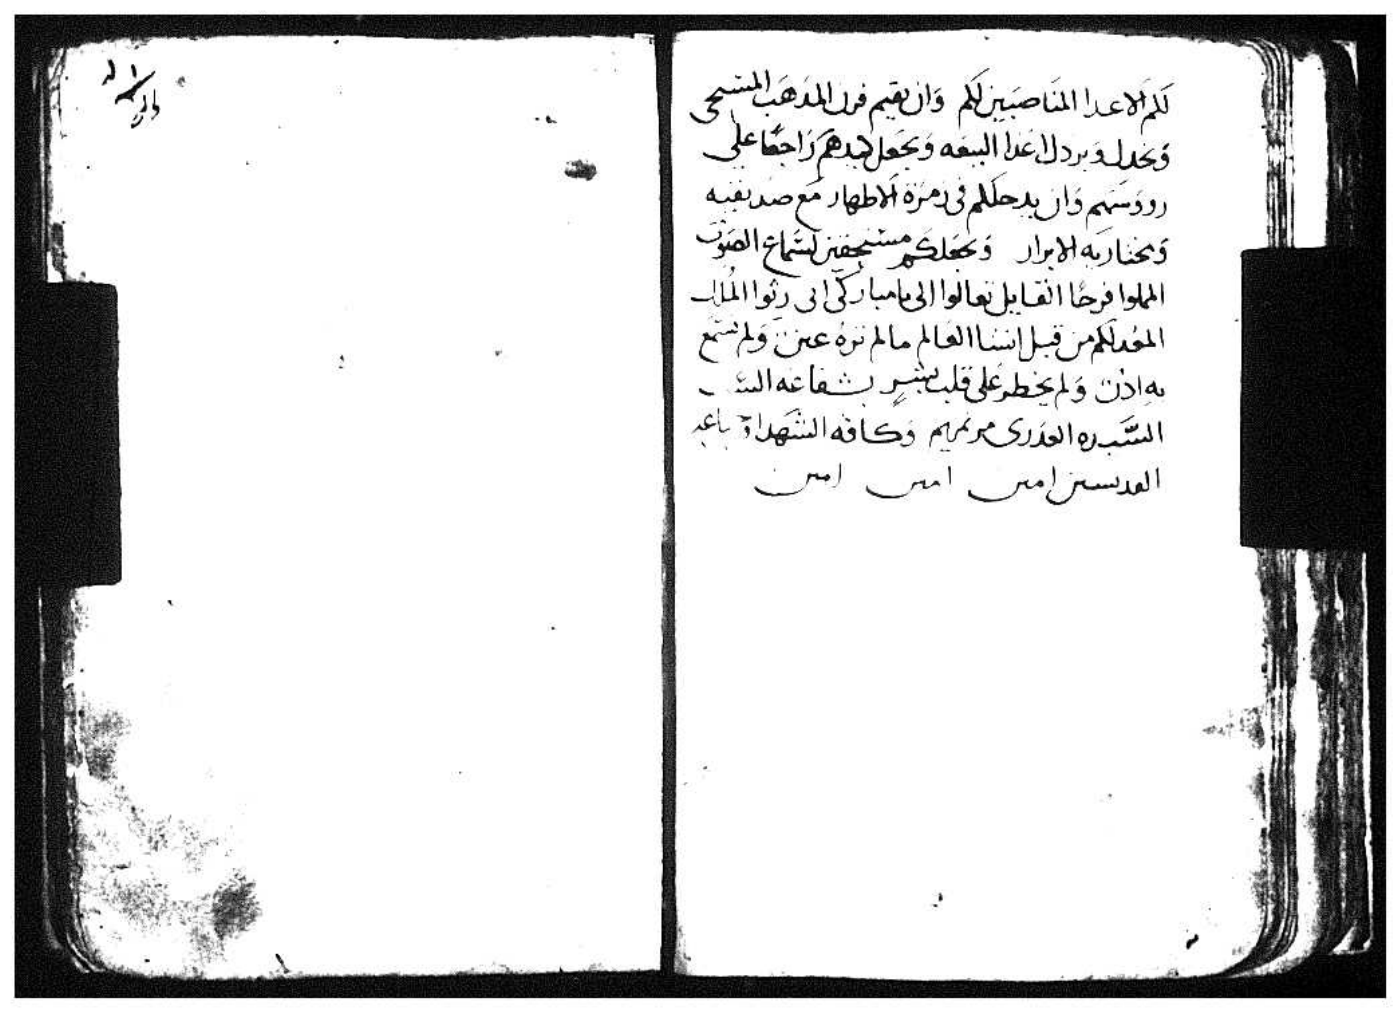 لكم الاعدا المناصبين لكم وان يقيم قرن المذهب المسيحي
ويخدل ويردل اعدا البيعه ويجعل كيدهم راجعًا علي
رووسهم وان يدخلكم في زمرة الاطهار مع صديقيه
ومختاريه الابرار ويجعلكم مستحقين لسماع الصوت
المملوا فرحًا القايل تعالوا الي يا مباركي ابي رثوا الملك
المعد لكم من قبل انشا العالم ما لم تره عين ولم تسمع
به اذن ولم يخطر على قلب بشرٍ بشفاعه
السيده العدرى مرتمريم وكافه الشهدا
القديسين امين امين امين